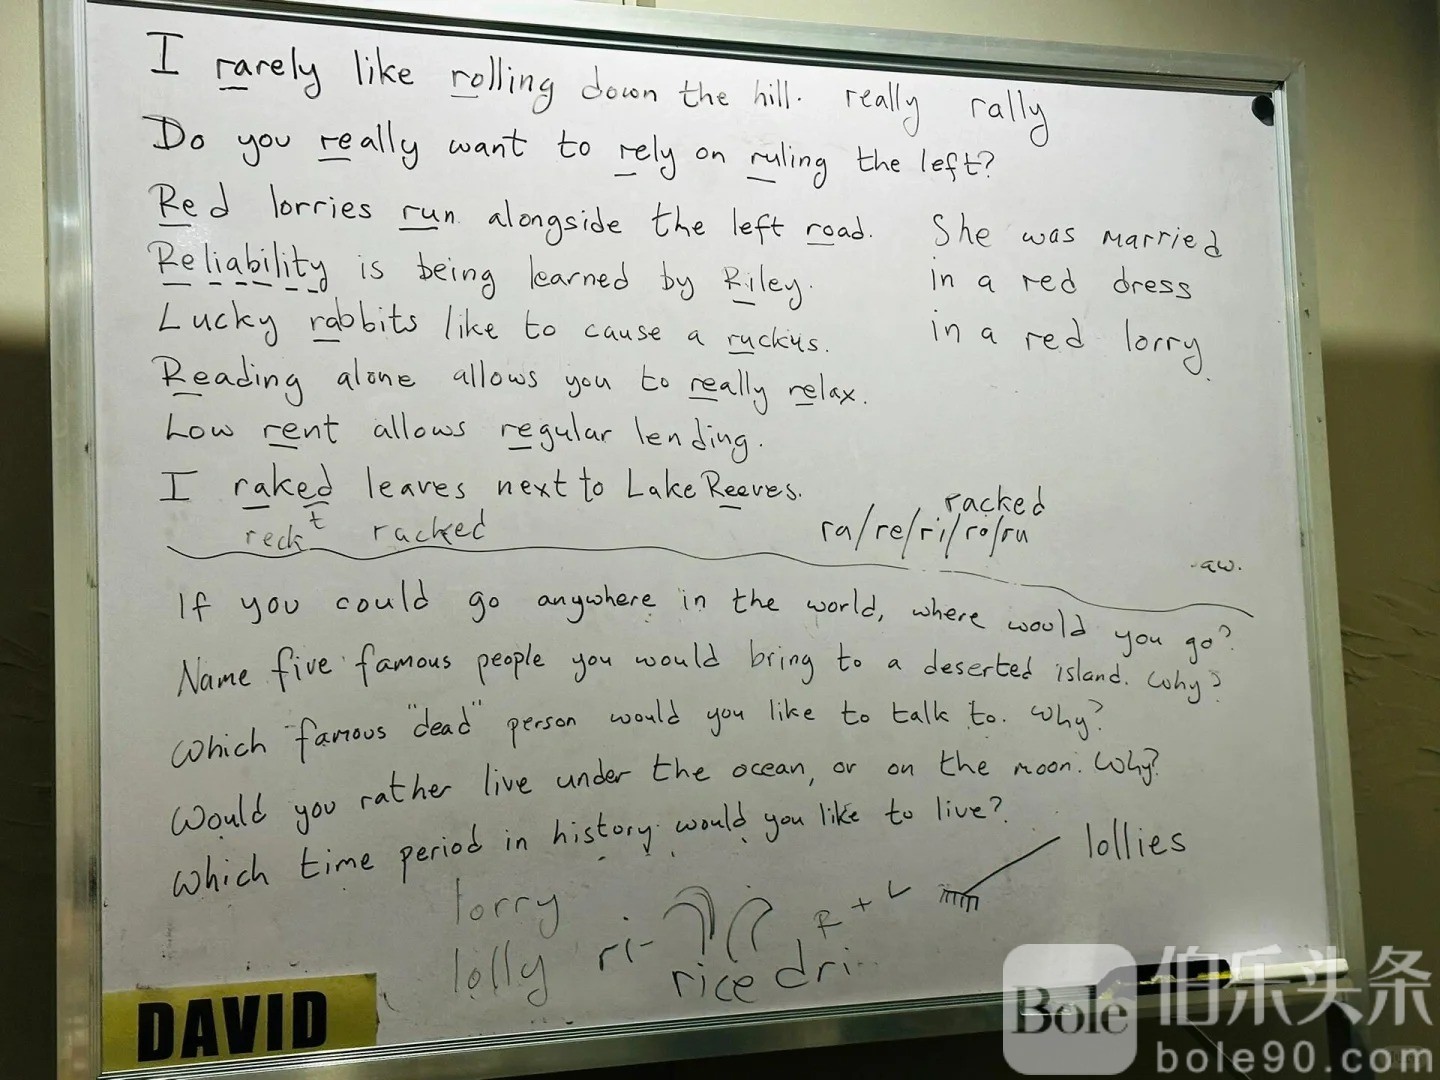 I rarely like rolling down the hill. really rally
Do you really want to rely on ruling the left?
Red lorries run alongside the left road.
Reliability is being learned by Riley.
Lucky rabbits like to cause a ruckus.
Reading alone allows you to really relax.
Low rent allows regular lending.
I raked leaves next to Lake Reeves.
t
reck racked
She was married
in a red dress
in a red lorry
racked
ra/re/ri/ro/ru
-aw.
If you could go anywhere in the world, where would you go?
Name five famous people you would bring to a deserted island. Why?
Which famous "dead" person would you like to talk to. Why?
Would you rather live under the ocean, or on the moon. Why?
Which time period in history would you like to live?
lollies
lorry
lolly
ri-
R + L
rice dri-
DAVID
Bole 伯乐头条
bole90.com